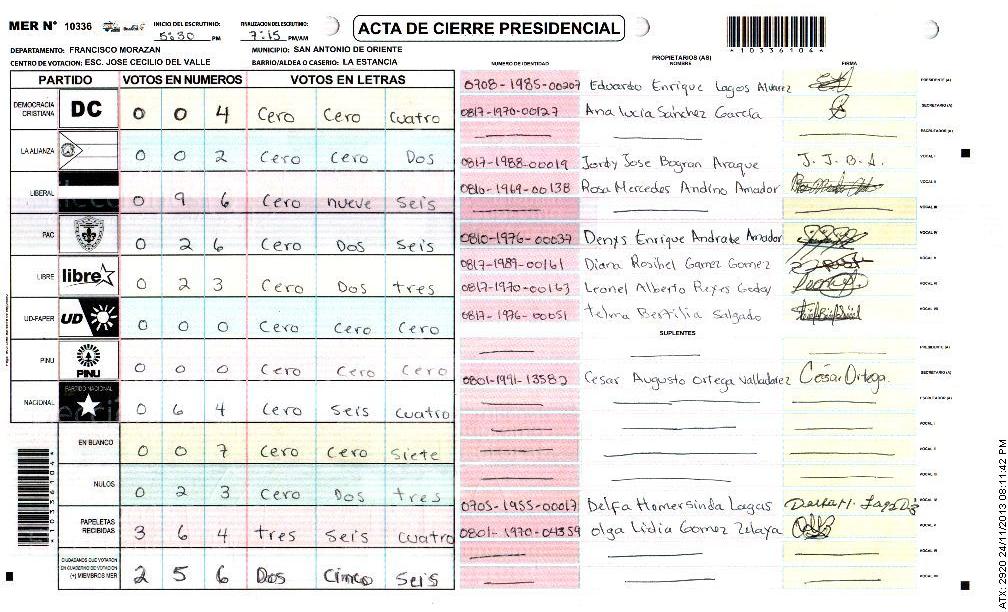 MER Nº 10336 INICIO DEL ESCRUTINIO: 5:30 PM FINALIZACION DEL ESCRUTINIO: 7:15 PM/AM ACTA DE CIERRE PRESIDENCIAL
*10336104*
DEPARTAMENTO: FRANCISCO MORAZAN MUNICIPIO: SAN ANTONIO DE ORIENTE
CENTRO DE VOTACION: ESC. JOSE CECILIO DEL VALLE BARRIO/ALDEA O CASERIO: LA ESTANCIA
PARTIDO VOTOS EN NUMEROS VOTOS EN LETRAS
DEMOCRACIA CRISTIANA DC 0 0 4 Cero Cero Cuatro
LA ALIANZA 0 0 2 Cero Cero Dos
LIBERAL 0 9 6 Cero nueve Seis
PAC 0 2 6 Cero Dos Seis
LIBRE libre 0 2 3 Cero Dos tres
UD-FAPER UD 0 0 0 Cero Cero Cero
PINU PINU 0 0 0 Cero Cero Cero
NACIONAL PARTIDO NACIONAL 0 6 4 Cero Seis cuatro
EN BLANCO 0 0 7 Cero Cero Siete
NULOS 0 2 3 Cero Dos tres
PAPELETAS RECIBIDAS 3 6 4 tres Seis cuatro
CIUDADANOS QUE VOTARON EN CUADERNO DE VOTACION (+) MIEMBROS MER 2 5 6 Dos Cinco Seis
PROPIETARIOS (AS)
NUMERO DE IDENTIDAD NOMBRE FIRMA
0708-1985-00207 Eduardo Enrique Lagos Alvarez PRESIDENTE (A)
0817-1970-00127 Ana Lucia Sánchez García SECRETARIO (A)
ESCRUTADOR (A)
0817-1988-00019 Jordy Jose Bogran Araque J. J. B. A. VOCAL I
0810-1969-00138 Rosa Mercedes Andino Amador VOCAL II
VOCAL III
0810-1976-00037 Denys Enrique Andrate Amador VOCAL IV
0817-1989-00161 Diana Rosibel Gamez Gomez VOCAL V
0817-1970-00163 Leonel Alberto Reyes Goday VOCAL VI
0817-1976-00051 Telma Bertilia Salgado VOCAL VII
SUPLENTES
PRESIDENTE (A)
0801-1991-13582 Cesar Augusto Ortega Valladarez César Ortega. SECRETARIO (A)
ESCRUTADOR (A)
VOCAL I
VOCAL II
VOCAL III
0705-1955-00017 Delfa Homersinda Lagas VOCAL IV
0801-1970-04359 Olga Lidia Gomez Zelaya VOCAL V
VOCAL VI
VOCAL VII
*10336104*
ATX: 2920 24/11/2013 08:11:42 PM